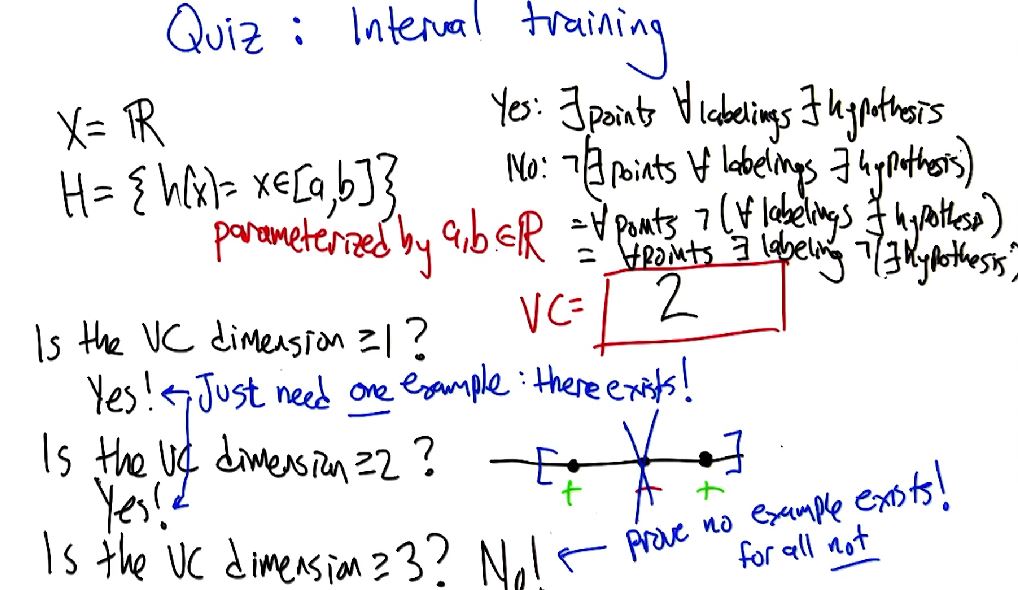 Quiz : Interval training
X = ℝ
H = { h(x) = x∈[a,b] }
parameterized by a,b ∈ ℝ
Yes: ∃ points ∀ labelings ∃ hypothesis
No: ¬(∃ points ∀ labelings ∃ hypothesis)
= ∀ points ¬ (∀ labelings ∃ hypothesis)
= ∀ points ∃ labeling ¬(∃ hypothesis)
VC = 2
Is the VC dimension ≥1 ?
Yes! ← Just need one example : there exists!
Is the VC dimension ≥2 ?
Yes!
[ ]
+ - +
Is the VC dimension ≥3? No!
← prove no example exists!
for all not